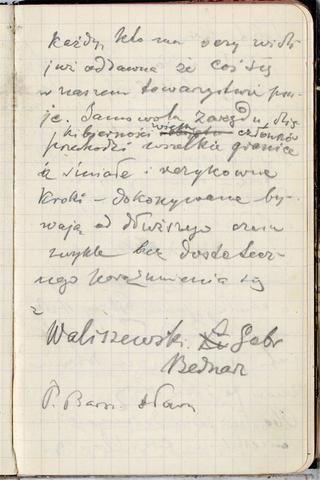 Każdy, kto ma oczy widzi
już oddawna że coś się
w naszem towarzystwie psu-
je. Samowola Zarządu, dzię-
ki bierności większ. członków
przechodzi wszelkie granice
a śmiałe i ryzykowne
kroki – dokonywane by-
wają od dłuższego czasu
zwykle bez dostatecz-
nego porozumienia się
z
Waliszewski. Gabr
Bednarz
P. Barsz.